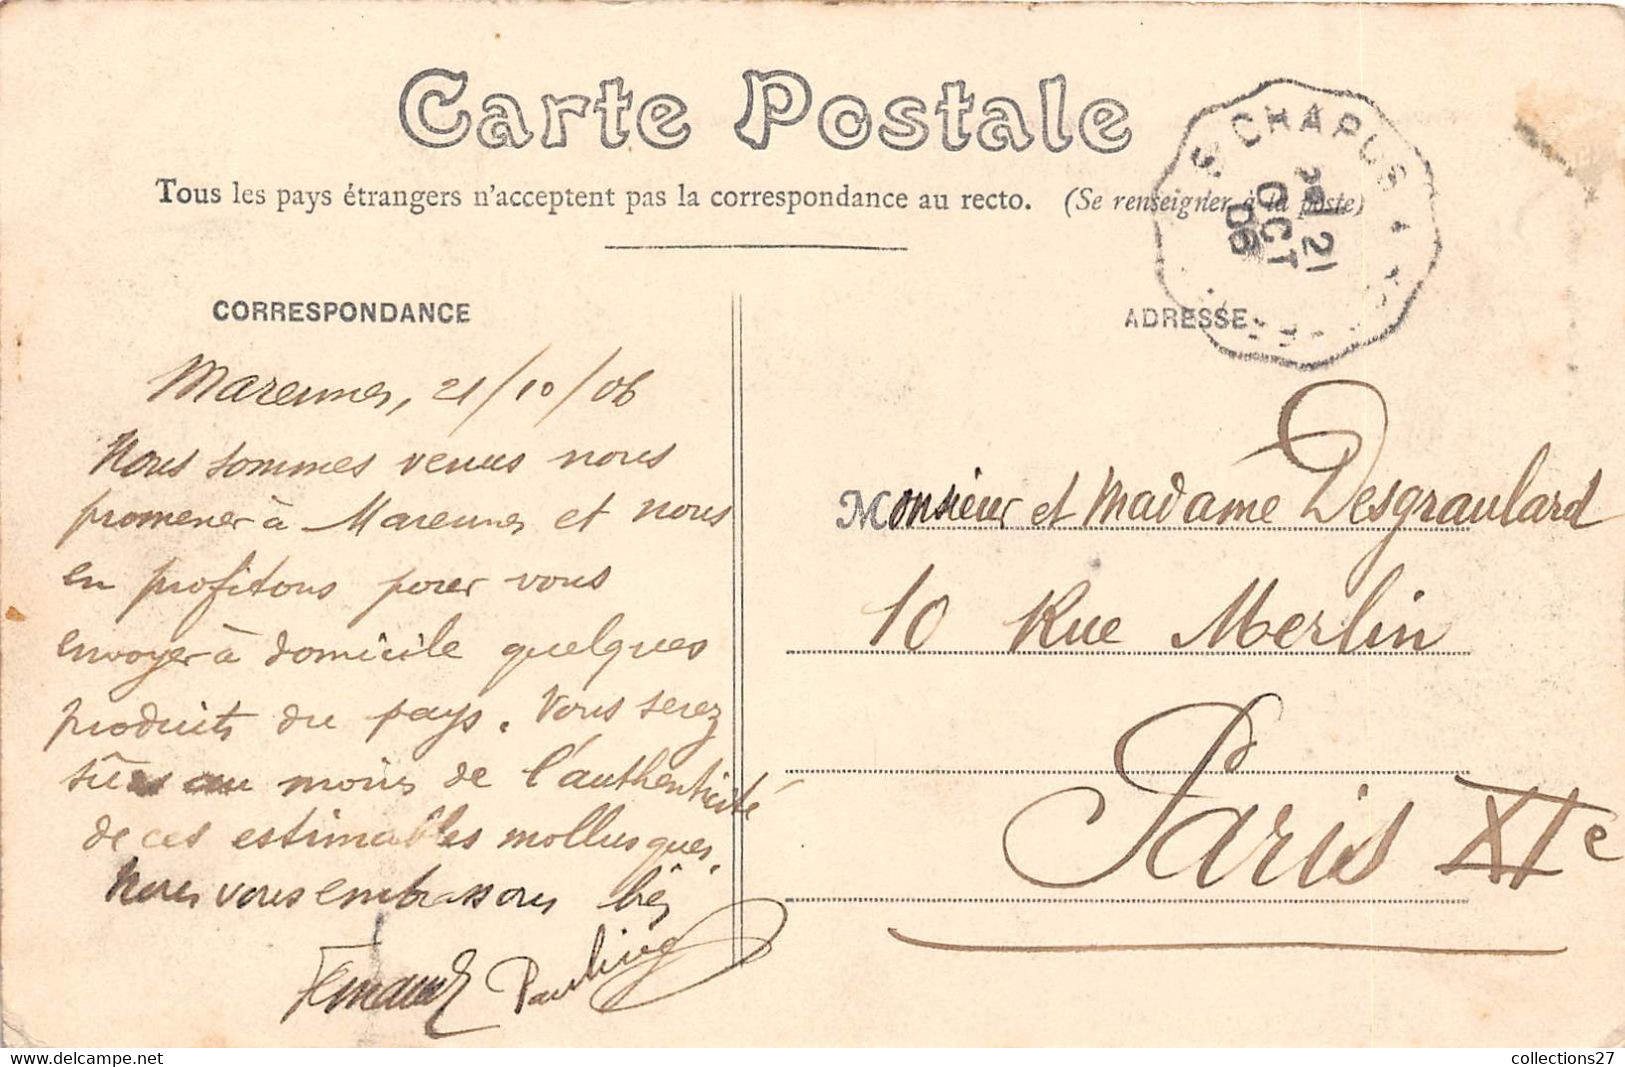 Carte Postale
Tous les pays étrangers n'acceptent pas la correspondance au recto. (Se renseigner à la poste)
CHAPUS
21
OCT
06
CORRESPONDANCE
ADRESSE
Marennes, 21/10/06
Nous sommes venus nous
promener à Marennes et nous
en profitons pour vous
envoyer à domicile quelques
produits du pays. Vous serez
sûrs au moins de l'authenticité
de ces estimables mollusques.
Nous vous embrassons bës
Fernand Pauline
Monsieur et Madame Desgraulard
10 Rue Merlin
Paris XIe
collections27